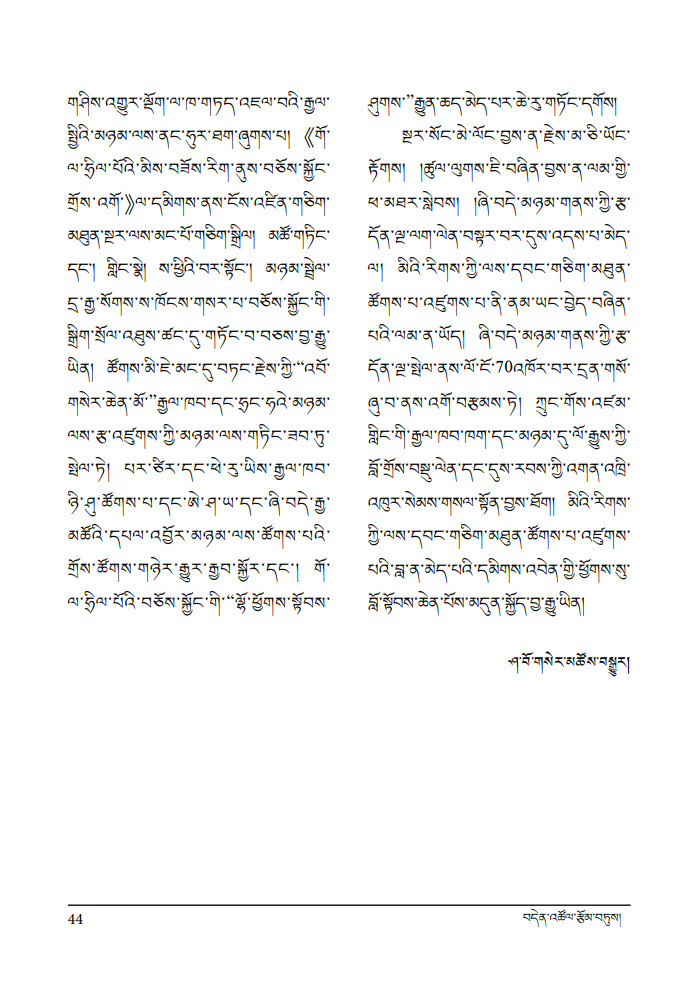 གཤིས་འགྱུར་ལྡོག་ལ་ཁ་གཏད་འཇལ་བའི་རྒྱལ་
སྤྱིའི་མཉམ་ལས་ནང་ཧུར་ཐག་ཞུགས་པ། 《གོ་
ལ་ཧྲིལ་པོའི་མིས་བཟོས་རིག་ནུས་བཅོས་སྐྱོང་
གྲོས་འགོ་》ལ་དམིགས་ནས་ངོས་འཛིན་གཅིག་
མཐུན་སྔར་ལས་མང་པོ་གཅིག་སྒྲིལ། མཚོ་གཏིང་
དང་། གླིང་སྣེ། ས་ཕྱིའི་བར་སྟོང་། མཉམ་སྦྲེལ་
དྲ་རྒྱ་སོགས་ས་ཁོངས་གསར་པ་བཅོས་སྐྱོང་གི་
སྒྲིག་སྲོལ་འཐུས་ཚང་དུ་གཏོང་བ་བཅས་བྱ་རྒྱུ་
ཡིན། ཚོགས་མི་ཇེ་མང་དུ་བཏང་རྗེས་ཀྱི་“འབོ་
གསེར་ཆེན་མོ་”རྒྱལ་ཁབ་དང་ཧྲང་ཧའེ་མཉམ་
ལས་རྩ་འཛུགས་ཀྱི་མཉམ་ལས་གཏིང་ཟབ་ཏུ་
སྤེལ་ཏེ། པར་ཙིར་དང་ཕེ་རུ་ཡིས་རྒྱལ་ཁབ་
ཉི་ཤུ་ཚོགས་པ་དང་ཨེ་ཤ་ཡ་དང་ཞི་བདེ་རྒྱ་
མཚོའི་དཔལ་འབྱོར་མཉམ་ལས་ཚོགས་པའི་
གྲོས་ཚོགས་གཉེར་རྒྱུར་རྒྱབ་སྐྱོར་དང་། གོ་
ལ་ཧྲིལ་པོའི་བཅོས་སྐྱོང་གི་“ལྷོ་ཕྱོགས་སྟོབས་
ཤུགས་”རྒྱུན་ཆད་མེད་པར་ཆེ་རུ་གཏོང་དགོས།
སྔར་སོང་མེ་ལོང་བྱས་ན་རྗེས་མ་ཅི་ཡོང་
རྟོགས། །ཚུལ་ལུགས་ཇི་བཞིན་བྱས་ན་ལམ་གྱི་
ཕ་མཐར་སླེབས། །ཞི་བདེ་མཉམ་གནས་ཀྱི་རྩ་
དོན་ལྔ་ལག་ལེན་བསྟར་བར་དུས་འདས་པ་མེད་
ལ། མིའི་རིགས་ཀྱི་ལས་དབང་གཅིག་མཐུན་
ཚོགས་པ་འཛུགས་པ་ནི་ནམ་ཡང་བྱེད་བཞིན་
པའི་ལམ་ན་ཡོད། ཞི་བདེ་མཉམ་གནས་ཀྱི་རྩ་
དོན་ལྔ་སྤེལ་ནས་ལོ་ངོ་70འཁོར་བར་དྲན་གསོ་
ཞུ་བ་ནས་འགོ་བརྩམས་ཏེ། ཀྲུང་གོས་འཛམ་
གླིང་གི་རྒྱལ་ཁབ་ཁག་དང་མཉམ་དུ་ལོ་རྒྱུས་ཀྱི་
བློ་གྲོས་བསྡུ་ལེན་དང་དུས་རབས་ཀྱི་འགན་འཁྲི་
འཁུར་སེམས་གསལ་སྟོན་བྱས་ཐོག། མིའི་རིགས་
ཀྱི་ལས་དབང་གཅིག་མཐུན་ཚོགས་པ་འཛུགས་
པའི་བླ་ན་མེད་པའི་དམིགས་འབེན་གྱི་ཕྱོགས་སུ་
བློ་སྟོབས་ཆེན་པོས་མདུན་སྐྱོད་བྱ་རྒྱུ་ཡིན།
ཤ་བོ་གསེར་མཚོས་བསྒྱུར།
44
བདེན་འཚོལ་རྩོམ་བཏུས།